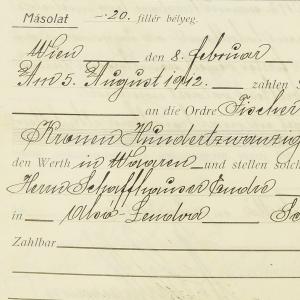 Másolat —.20. fillér bélyeg.
Wien den 8. februar
Am 5. August 1912. zahlen S
an die Ordre Fischer
Kronen Hundertzwanzig
den Werth in Waaren und stellen solch
Herrn Schaffhauser Endre
in Alsó-Lendva Sc
Zahlbar